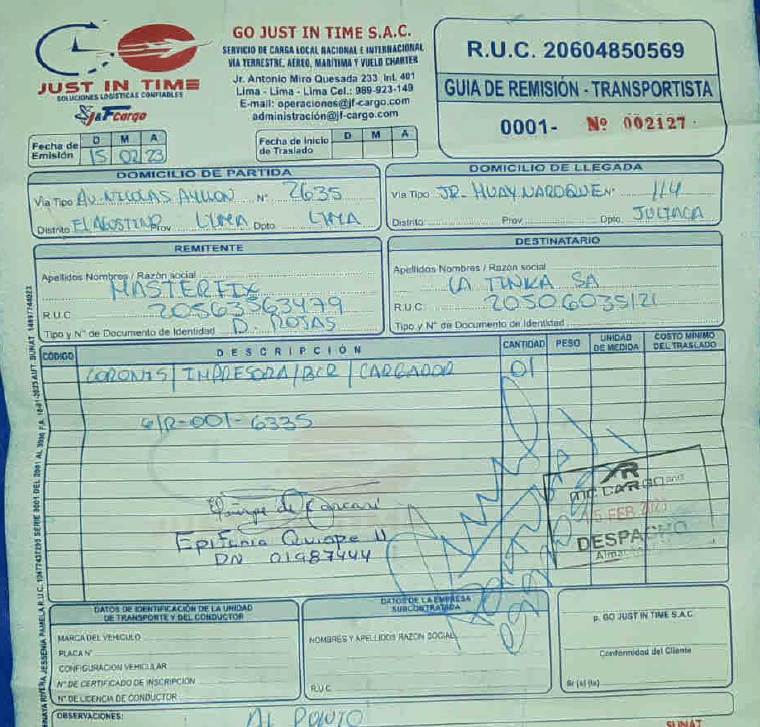 GO JUST IN TIME S.A.C.
SERVICIO DE CARGA LOCAL NACIONAL E INTERNACIONAL
VIA TERRESTRE, AEREO, MARITIMA Y VUELO CHARTER
Jr. Antonio Miro Quesada 233 Int. 401
Lima - Lima - Lima Cel.: 989-923-149
E-mail: operaciones@jf-cargo.com
administración@jf-cargo.com
JUST IN TIME
SOLUCIONES LOGISTICAS CONFIABLES
J&F Cargo
R.U.C. 20604850569
GUIA DE REMISIÓN - TRANSPORTISTA
0001- Nº 002127
Fecha de Emisión D M A
15 02 23
Fecha de Inicio de Traslado D M A
DOMICILIO DE PARTIDA
Via Tipo AV. NICOLAS AYLLON Nº 2635
Distrito EL AGUSTINO Prov. LIMA Dpto. LIMA
DOMICILIO DE LLEGADA
Via Tipo JR. Nº 114
Distrito Prov. Dpto. JULIACA
REMITENTE
Apellidos Nombres / Razón social
MASTERFIX
R.U.C. 20563563479
Tipo y Nº de Documento de Identidad D. ROJAS
DESTINATARIO
Apellidos Nombres / Razón social
LA TINKA SA
R.U.C 20506035121
Tipo y Nº de Documento de Identidad
CODIGO DESCRIPCIÓN CANTIDAD PESO UNIDAD DE MEDIDA COSTO MINIMO DEL TRASLADO
CORONIS / IMPRESORA / BCR / CARGADOR 01
G/R-001-6335
Epifania Quispe
DNI 01487444
CARGO
15 FEB. 2023
DESPACHO
DATOS DE IDENTIFICACIÓN DE LA UNIDAD
DE TRANSPORTE Y DEL CONDUCTOR
MARCA DEL VEHICULO
PLACA Nº
CONFIGURACIÓN VEHICULAR
Nº DE CERTIFICADO DE INSCRIPCIÓN
Nº DE LICENCIA DE CONDUCTOR
DATOS DE LA EMPRESA
SUBCONTRATADA
NOMBRES Y APELLIDOS RAZON SOCIAL
R.U.C
p. GO JUST IN TIME S.A.C.
Conformidad del Cliente
Sr (a) (ta)
OBSERVACIONES:
AL PUNTO
SUNAT